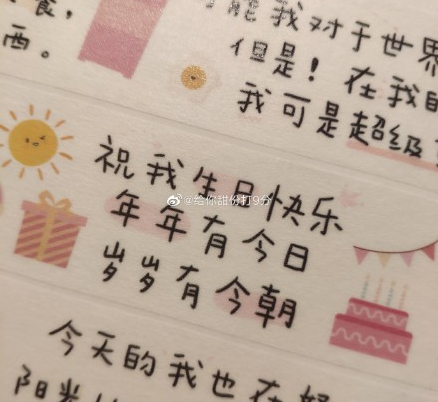 食，
西。
能我对于世界
但是！在我
我可是超级
祝我生日快乐
年年有今日
岁岁有今朝
@给你甜份打9分
今天的我也在
阳光